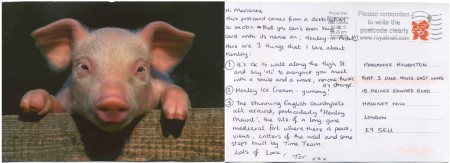 Hi Marianne
This postcard comes from a destination
so exotic that you can't even buy a
card with its name on: Henley-in-Arden!
Here are 3 things that I love about
Henley:
① It's ok to walk along the High St
and say 'Hi' to everyone you meet
with a smile and a wave,
it's strange.
② Henley Ice Cream - yummy!
③ The stunning English countryside
all around, particularly "Henley
Mount", the site of a long gone
medieval fort where there is peace,
views, critters of the wild and some
steps built by Time Team.
Lots of Love,
xxx
Royal Mail
Please remember
to write the
postcode clearly
www.royalmail.com
MARIANNE
3 OLDE
18 PRINCE EDWARD ROAD
HACKNEY WICK
LONDON
E9 5LU